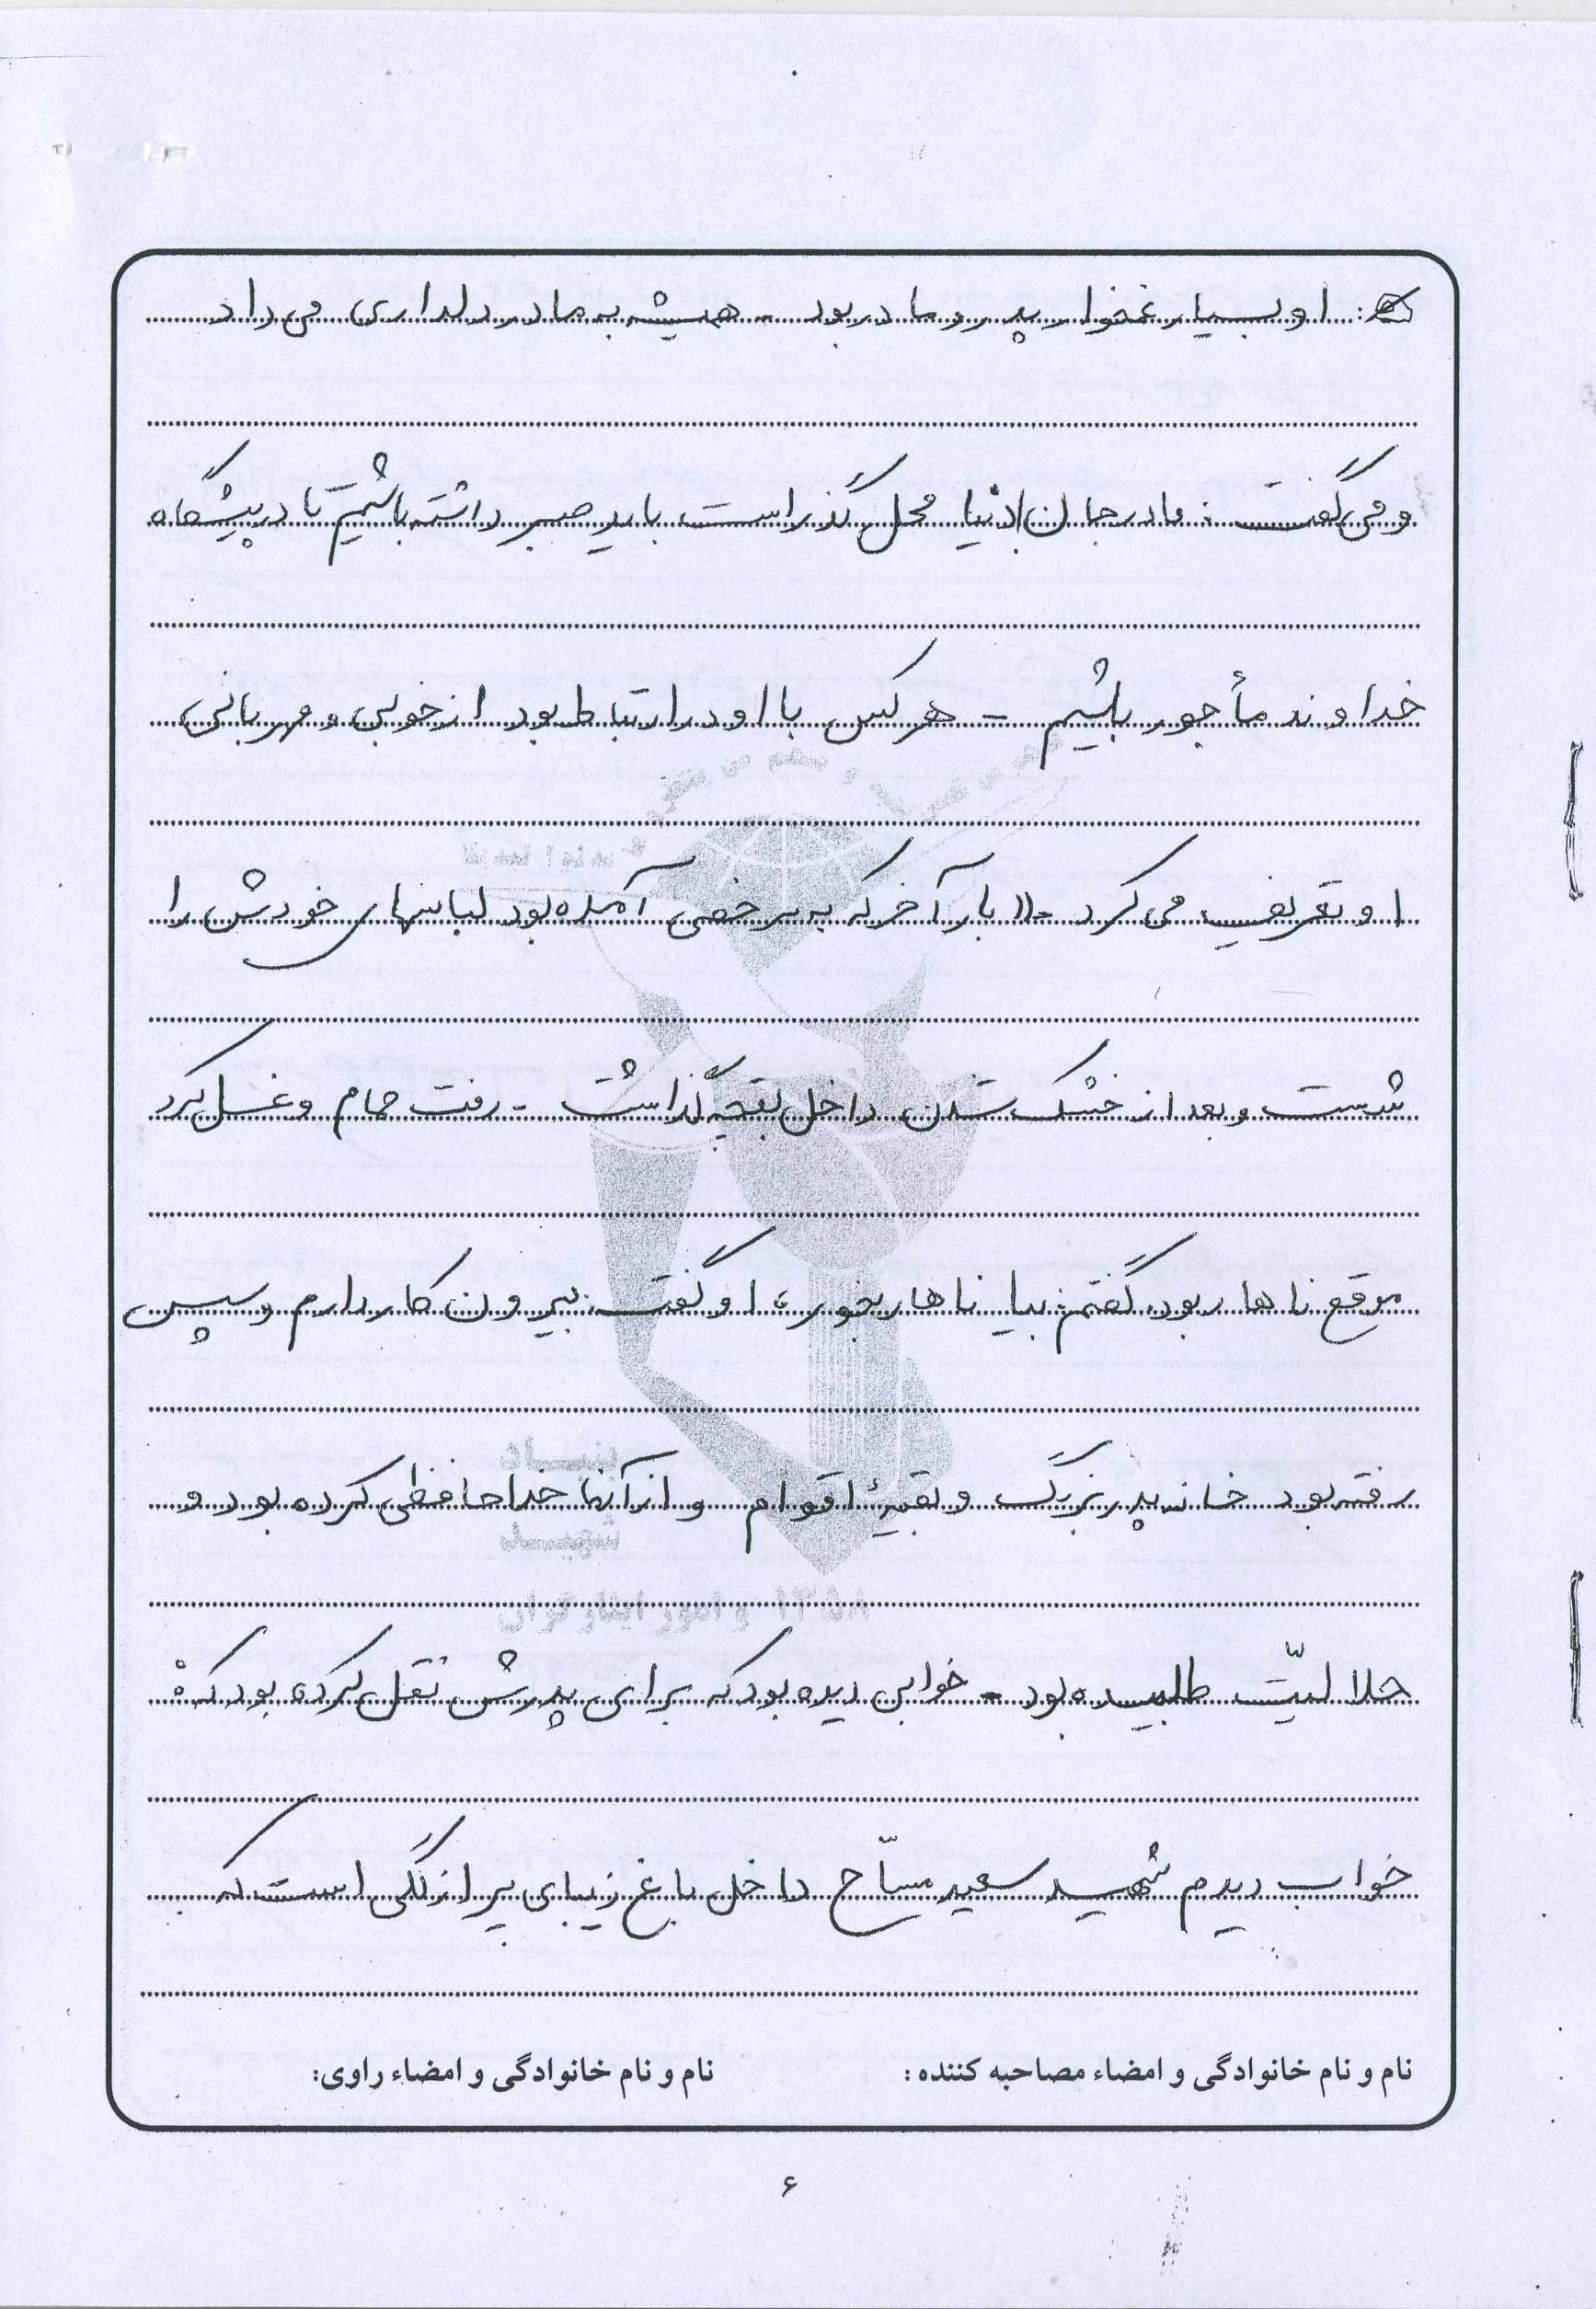 او بسیار غمخوار پدر و مادر بود - همیشه به مادر دلداری می داد
و می گفت : مادر جان دنیا محل گذر است باید صبر داشته باشیم تا در پیشگاه
خداوند مأجور باشیم - هر کس با او در ارتباط بود از خوبی و مهربانی
او تعریف می کرد - « بار آخر که به مرخصی آمده بود لباسهای خودش را
شست و بعد از خشک شدن داخل بقچه گذاشت - رفت حمام و غسل کرد
موقع ناهار بود. گفتم: بیا ناهار بخور، او گفت: بیرون کار دارم و سپس
رفته بود خانه پدر بزرگ و بقیهٔ اقوام و از آنها خداحافظی کرده بود و
حلالیّت طلبیده بود - خوابی دیده بود که برای پدرش نقل کرده بود که:
خواب دیدم شهید سعید مسّاح داخل باغ زیبای پر از گلی است که
بنیاد
شهید
و امور ایثارگران ۱۳۵۸
نام و نام خانوادگی و امضاء مصاحبه کننده : نام و نام خانوادگی و امضاء راوی:
۶